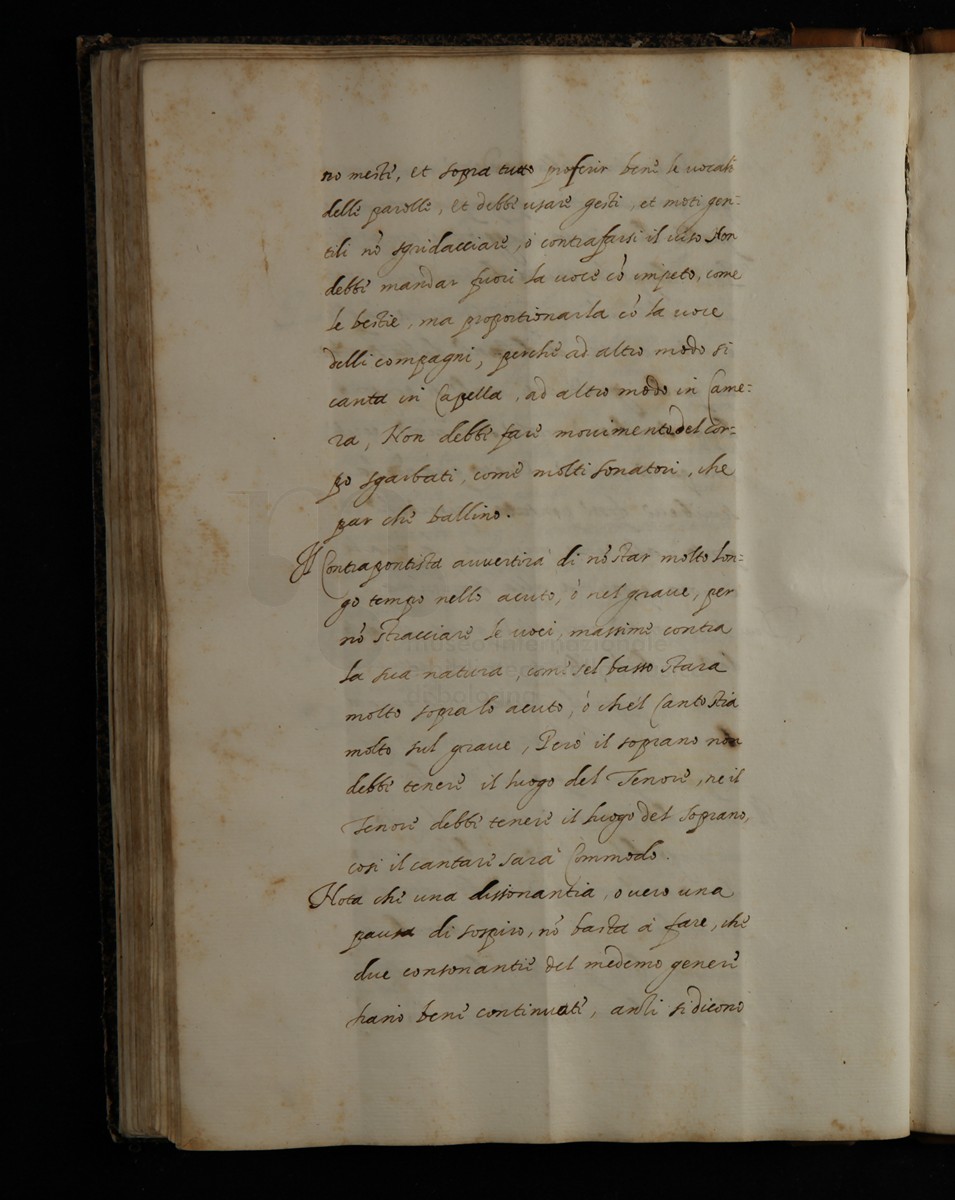 no mesté, et sopra tutto proferir bené le vocali
dellé parollé, et debbé usaré gesti, et moti gen=
tili nõ sgridacciaré, ò contrafarsi il viso Non
debbé mandar fuori la vocé cõ impeto, comé
le bestié, ma proportionarla cõ la voce
delli compagni, perché ad altro modo si
canta in Capella, ad altro modo in Came=
ra, Non debbé faré movimento del cor=
po sgarbati, comé molti sonatori, che
par ché ballino.
Il Contrapontista avvertirà di nõ star molto lon=
go tempo nello acuto, ò nel grave, per
nõ stracciaré le voci, massimé contra
la sua natura, comé sel basso stara
molto sopra lo acuto, ò chél Canto stia
molto sul grave, Però il soprano non
debbé teneré il luogo del Tenoré, ne il
Tenoré debbé teneré il luogo del soprano,
cosi il cantaré sarà Commodo.
Nota ché una dissonantia, overo una
pausa di sospiro, nõ basta à fare, ché
due consonantié del medemo generé
siano bené continuaté, anzi si dicono
museo internazionale
di bologna